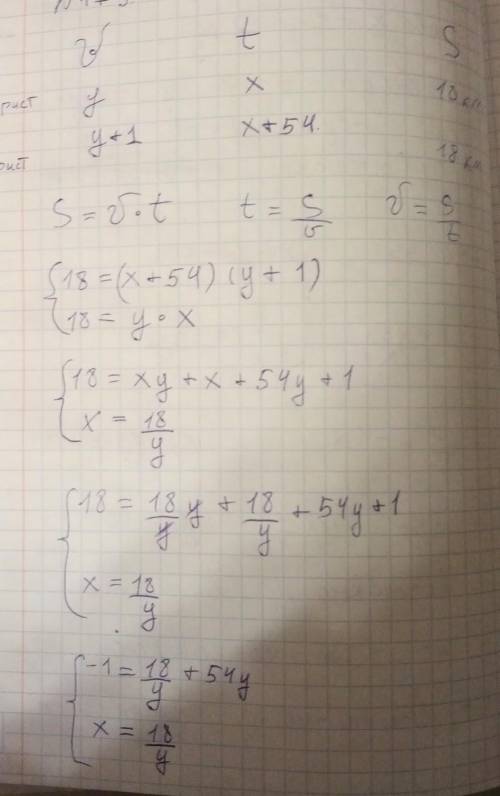 V t S
рист y x 18 км
рист y+1 x+54. 18 км
S = V · t t = S/V V = S/t
{ 18 = (x+54) (y + 1)
18 = y · x
{ 18 = xy + x + 54y + 1
x = 18/y
{ 18 = 18/y y + 18/y + 54y + 1
x = 18/y
{ -1 = 18/y + 54y
x = 18/y